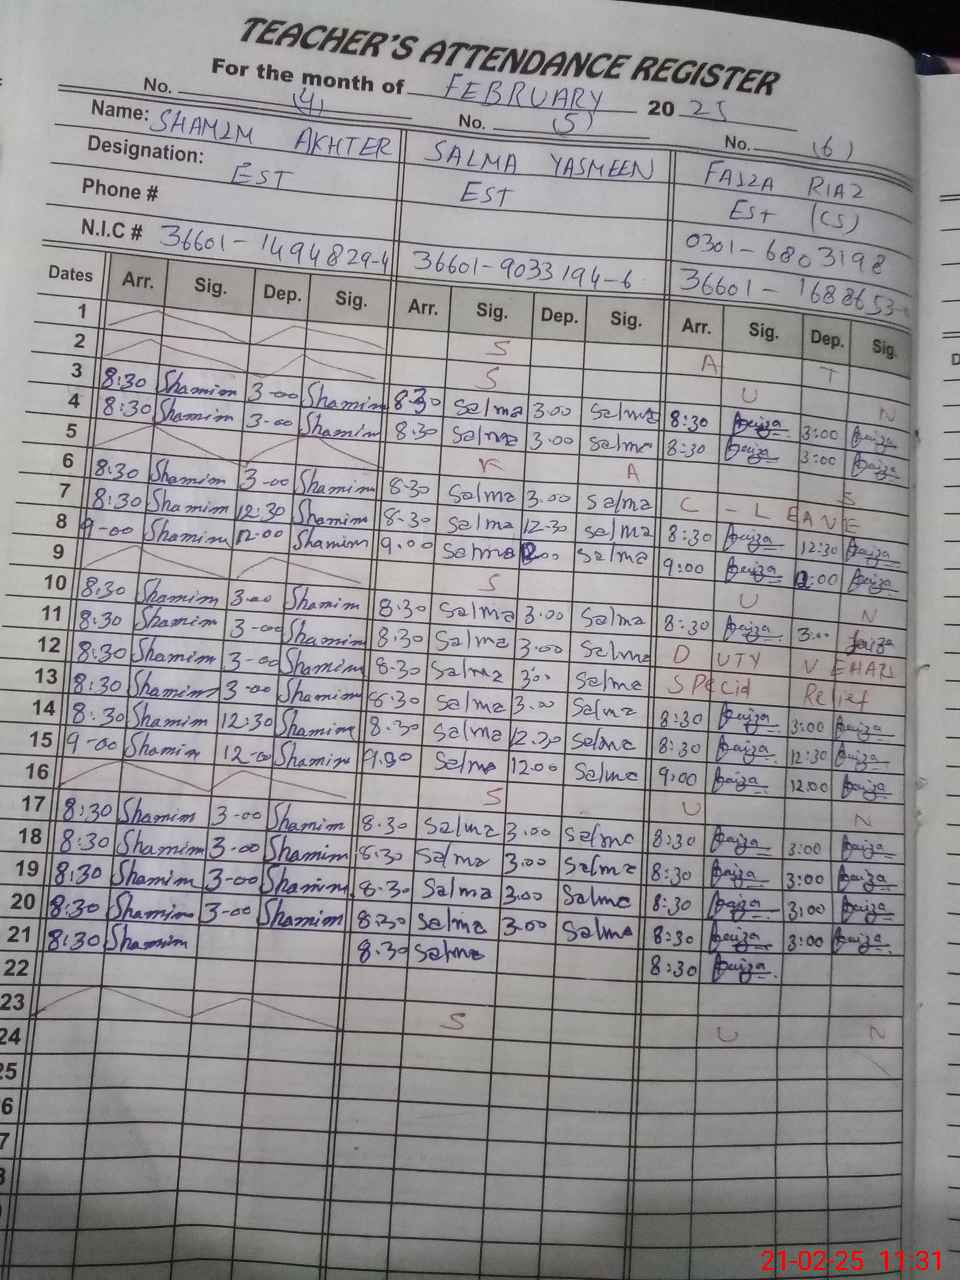 TEACHER'S ATTENDANCE REGISTER
For the month of FEBRUARY 2025
No. (4) No. (5) No. (6)
Name: SHAMIM AKHTER SALMA YASMEEN FAIZA RIAZ
Designation: EST EST EST (CS)
Phone # 0301-6803198
N.I.C # 36601-1494829-4 36601-9033194-6 36601-1688653-
Dates Arr. Sig. Dep. Sig. Arr. Sig. Dep. Sig. Arr. Sig. Dep. Sig.
1 S A T
2 S U N
3 8:30 Shamim 3-00 Shamim 8-30 Salma 3.00 Salma 8:30 Faiza 3:00 Faiza
4 8:30 Shamim 3-00 Shamim 8.30 Salma 3.00 Salma 8:30 Faiza 3:00 Faiza
5 K A S
6 8:30 Shamim 3-00 Shamim 8-30 Salma 3.00 Salma C-LEAVE
7 8:30 Shamim 12:30 Shamim 8-30 Salma 12-30 Salma 8:30 Faiza 12:30 Faiza
8 9-00 Shamim 12-00 Shamim 9.00 Salma 12.00 Salma 9:00 Faiza 12:00 Faiza
9 S U N
10 8:30 Shamim 3-00 Shamim 8:30 Salma 3.00 Salma 8:30 Faiza 3:00 Faiza
11 8:30 Shamim 3-00 Shamim 8:30 Salma 3.00 Salma DUTY VEHARI
12 8:30 Shamim 3-00 Shamim 8-30 Salma 3:00 Salma Specid Relief
13 8:30 Shamim 3-00 Shamim 8.30 Salma 3.00 Salma 8:30 Faiza 3:00 Faiza
14 8:30 Shamim 12:30 Shamim 8.30 Salma 12.30 Salma 8:30 Faiza 12:30 Faiza
15 9-00 Shamim 12-00 Shamim Salma 12.00 Salma 9:00 Faiza 12:00 Faiza
16 S U N
17 8:30 Shamim 3-00 Shamim 8.30 Salma 3.00 Salma 8:30 Faiza 3:00 Faiza
18 8:30 Shamim 3-00 Shamim 8:30 Salma 3.00 Salma 8:30 Faiza 3:00 Faiza
19 8:30 Shamim 3-00 Shamim 8.30 Salma 3.00 Salma 8:30 Faiza 3:00 Faiza
20 8:30 Shamim 3-00 Shamim 8.30 Salma 3.00 Salma 8:30 Faiza 3:00 Faiza
21 8:30 Shamim 8.30 Salma 8:30 Faiza
22
23 S U N
24
25
21-02-25 11:31